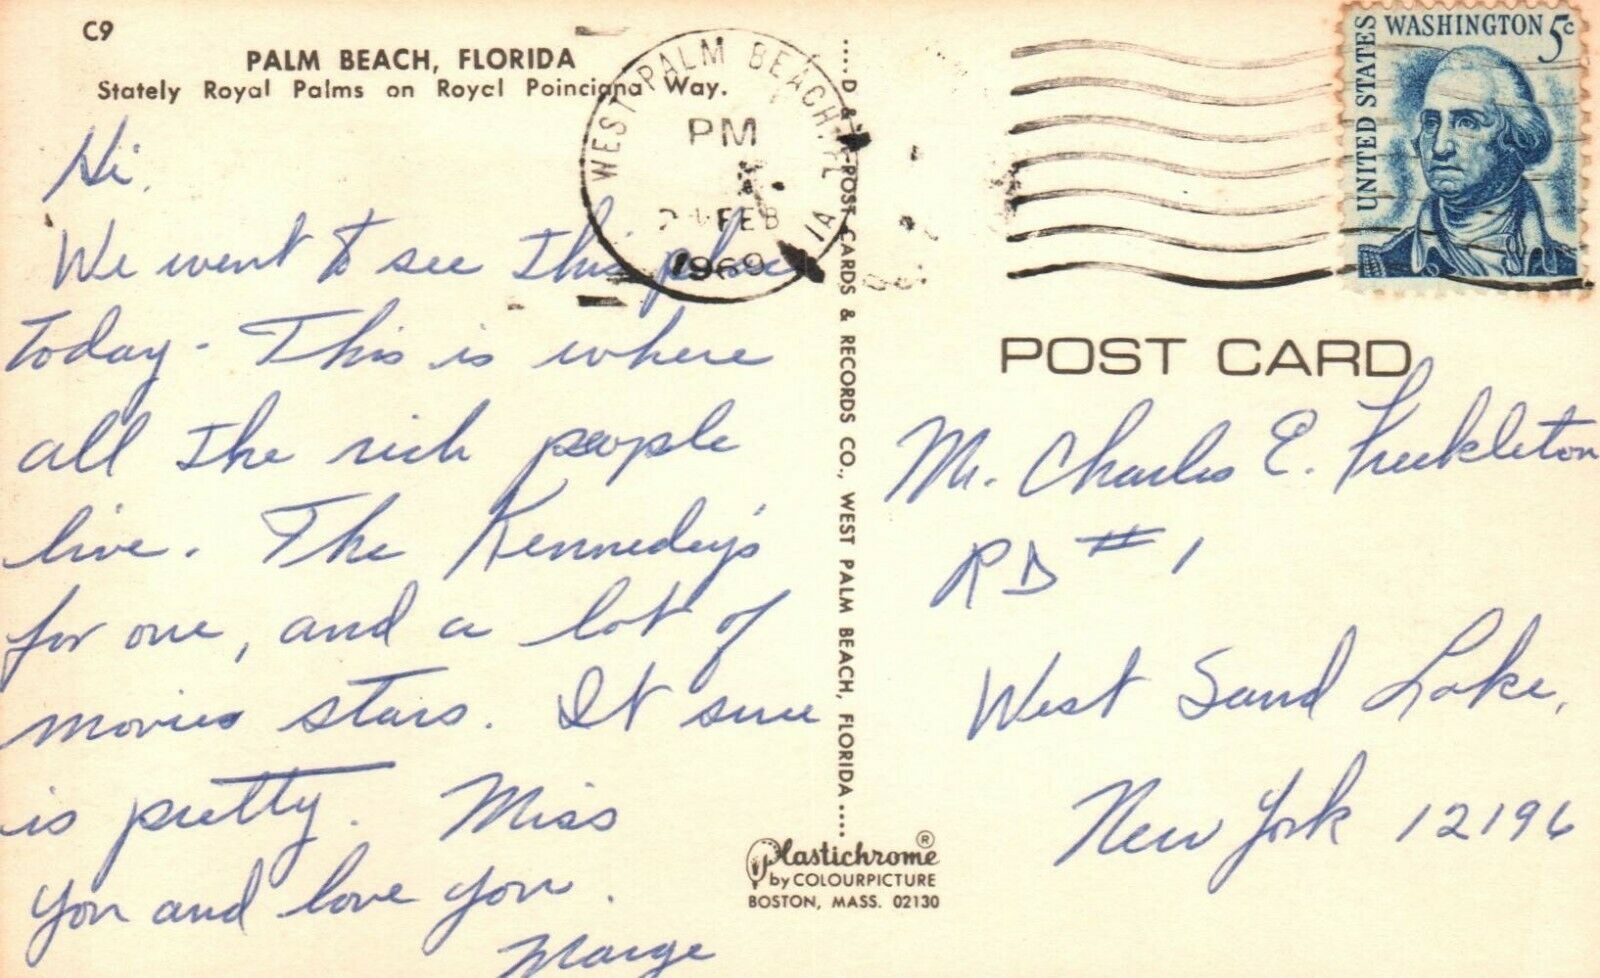 C9
PALM BEACH, FLORIDA
Stately Royal Palms on Royal Poinciana Way.
Hi.
We went to see this place
today - This is where
all the rich people
live. The Kennedey's
for one, and a lot of
movies stars. It sure
is pretty. Miss
you and love you.
Marge
WEST PALM BEACH, FL
PM
FEB
1969
....D & POST CARDS & RECORDS CO., WEST PALM BEACH, FLORIDA....
Plastichrome®
by COLOURPICTURE
BOSTON, MASS. 02130
UNITED STATES
WASHINGTON 5c
POST CARD
Mr. Charles E. Freckleton
RD #1
West Sand Lake,
New York 12196